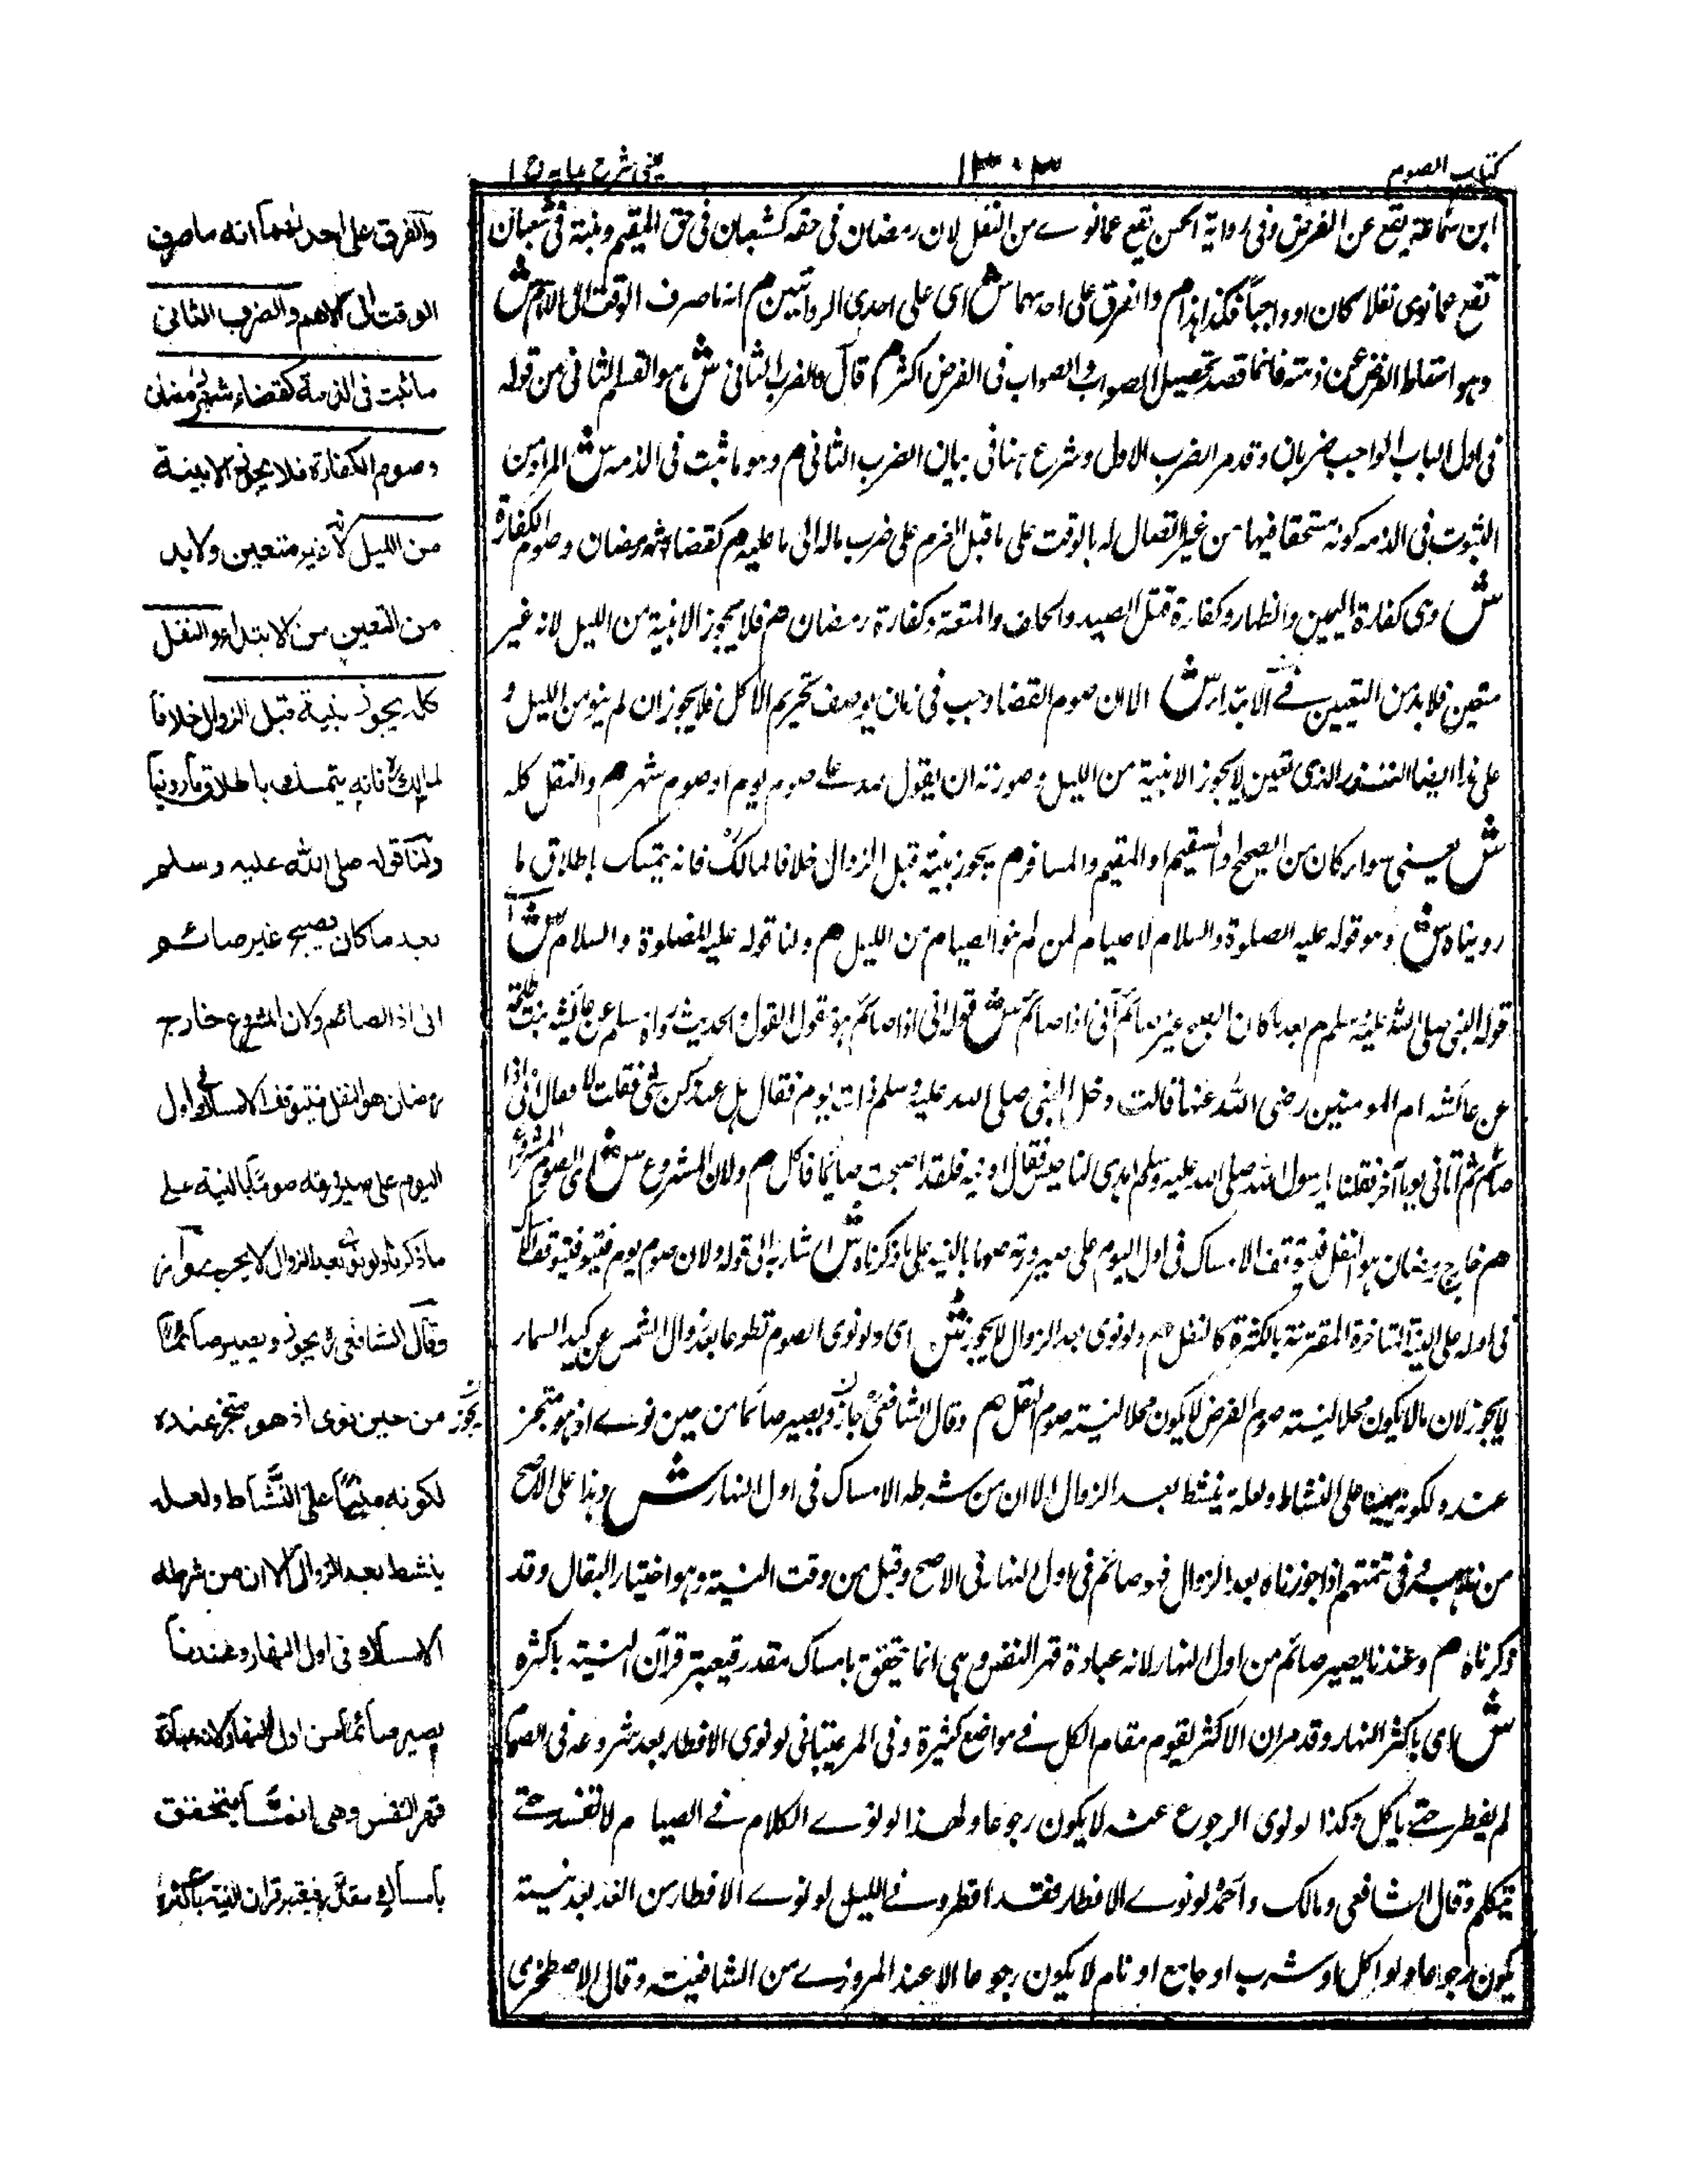 كتاب الصوم
١٣٠٣
عيني شرح هدايه ج ١
ابن سماعة يقع عن الفرض وفى رواية الحسن يقع عما نوے من النفل لان رمضان فى حقه كشعبان فى حق المقيم ونيته فى شعبان
تقع عما نوى نفلا كان او واجبا فكذا هذا م والفرق على احدىهما ش اى على احدى الروايتين م انه ما صرف الوقت الى الاهم ش
وهو اسقاط الفرض عن ذمته فانما قصد تحصيل الصواب والصواب فى الفرض اكثر م قال والضرب الثانى ش هو القسم الثانى من قوله
فى اول الباب الواجب ضربان وقد مر الضرب الاول وشرع هنا فى بيان الضرب الثانى م وهو ما ثبت فى الذمه ش المراد من
الثبوت فى الذمه كونه مستحقا فيها من غير اتصال له بالوقت على ما قبل العزم على ضرب ماله الى ما عليه م كقضاء شهر رمضان وصوم الكفارة
ش وهى كفارة اليمين والظهار وكفارة قتل الصيد والحلف والمتعة وكفارة رمضان هم فلا يجوز الا بنية من الليل لانه غير
متعين فلا بد من التعيين فے الابتداء ش الا ان صوم القضا وجب فى زمان يوصف تحريم الاكل فلا يجوز ان لم ينو من الليل و
على هذا ايضا النذر الذى تعين لا يجوز الا بنية من الليل وصورته ان يقول لله علے صوم يوم او صوم شهر هم والنفل كله
ش يعنى سواء كان من الصحيح او السقيم او المقيم والمسافر م يجوز بنية قبل الزوال خلافا لمالك فانه يتمسك باطلاق ما
رويناه ش وهو قوله عليه الصلوة والسلام لا صيام لمن لم ينو الصيام من الليل هم ولنا قوله عليه الصلوة والسلام ش اے
قول النبى صلى الله عليه وسلم م بعد ما كان اصبح غير صائم انى اذا صائم ش قوله انى اذا صائم هو مقول القول والحديث رواه مسلم عن عائشه بنت طلحة
عن عائشه ام المومنين رضى الله عنها قالت دخل النبى صلى الله عليه وسلم ذات يوم فقال هل عندكن شئ فقلت لا فقال انى اذا
صائم ثم اتانى يوما آخر فقلنا يا رسول الله صلى الله عليه وسلم اهدى لنا حيس فقال ادنيه فلقد اصبحت صائما فاكل هم ولان المشروع ش اى الصوم المشروع
هم خارج رمضان هو النفل فيتوقف الامساك فى اول اليوم على صيرورته صوما بالنية على ما ذكرناه ش اشار به الى قوله ولان صوم يوم فيتوقف الامساك
فى اوله على النية المتاخرة المقترنة بالكثرة كالنفل هم ولو نوى بعد الزوال لا يجوز ش اى ولو نوى الصوم تطوعا بعد زوال الشمس عن كبد السماء
لا يجوز لان ما لا يكون محلا لنية صوم الفرض لا يكون محلا لنية صوم النفل هم وقال الشافعى جاز ويصير صائما من حين نوے اذ هو متجز
عنده لكونه مبنيا على النشاط ولعله ينشط بعد الزوال الا ان من شرطه الامساك فى اول النهار ش وهذا على الاصح
من مذهبه وفى تتمتهم اذا جوزناه بعد الزوال فهو صائم فى اول النهار فى الاصح وقيل من وقت النية وهو اختيار القفال وقد
ذكرناه م وعندنا يصير صائم من اول النهار لانه عبادة قهر النفس وهى انما تتحقق بامساك مقدر فيعتبر قران النية باكثره
ش اى باكثر النهار وقد مر ان الاكثر يقوم مقام الكل فے مواضع كثيرة وفى المرغينانى لو نوى الافطار بعد شروعه فى الصوم
لم يفطر حتے ياكل وكذا لو نوى الرجوع عنه لا يكون رجوعا ولهذا لو نوے الكلام فے الصيام لا تفسد حتے
يتكلم وقال الشافعى ومالك واحمد لو نوے الافطار فقد افطر وفے الليل لو نوے الافطار من الغد بعد نيته
يكون رجوعا ولو اكل او شرب او جامع او نام لا يكون رجوعا الا عند المروزے من الشافعية وقال الاصطخرى
والفرق على احدىهما انه ما صرف
الوقت الى الاهم والضرب الثانى
ما ثبت فى الذمة كقضاء شهر رمضان
وصوم الكفارة فلا يجوز الا بنية
من الليل لانه غير متعين ولا بد
من التعيين من الابتداء والنفل
كله يجوز بنية قبل الزوال خلافا
لمالك فانه يتمسك باطلاق ما روينا
ولنا قوله صلى الله عليه وسلم
بعد ما كان يصبح غير صائم
انى اذا لصائم ولان المشروع خارج
رمضان هو النفل فيتوقف الامساك فى اول
اليوم على صيرورته صوما بالنية على
ما ذكرنا ولو نوى بعد الزوال لا يجوز
وقال الشافعى يجوز ويصير صائما
من حين نوى اذ هو متجز عنده
لكونه مبنيا على النشاط ولعله
ينشط بعد الزوال الا ان من شرطه
الامساك فى اول النهار وعندنا
يصير صائما من اول النهار لانه عبادة
قهر النفس وهى انما يتحقق
بامساك مقدر فيعتبر قران النية باكثره